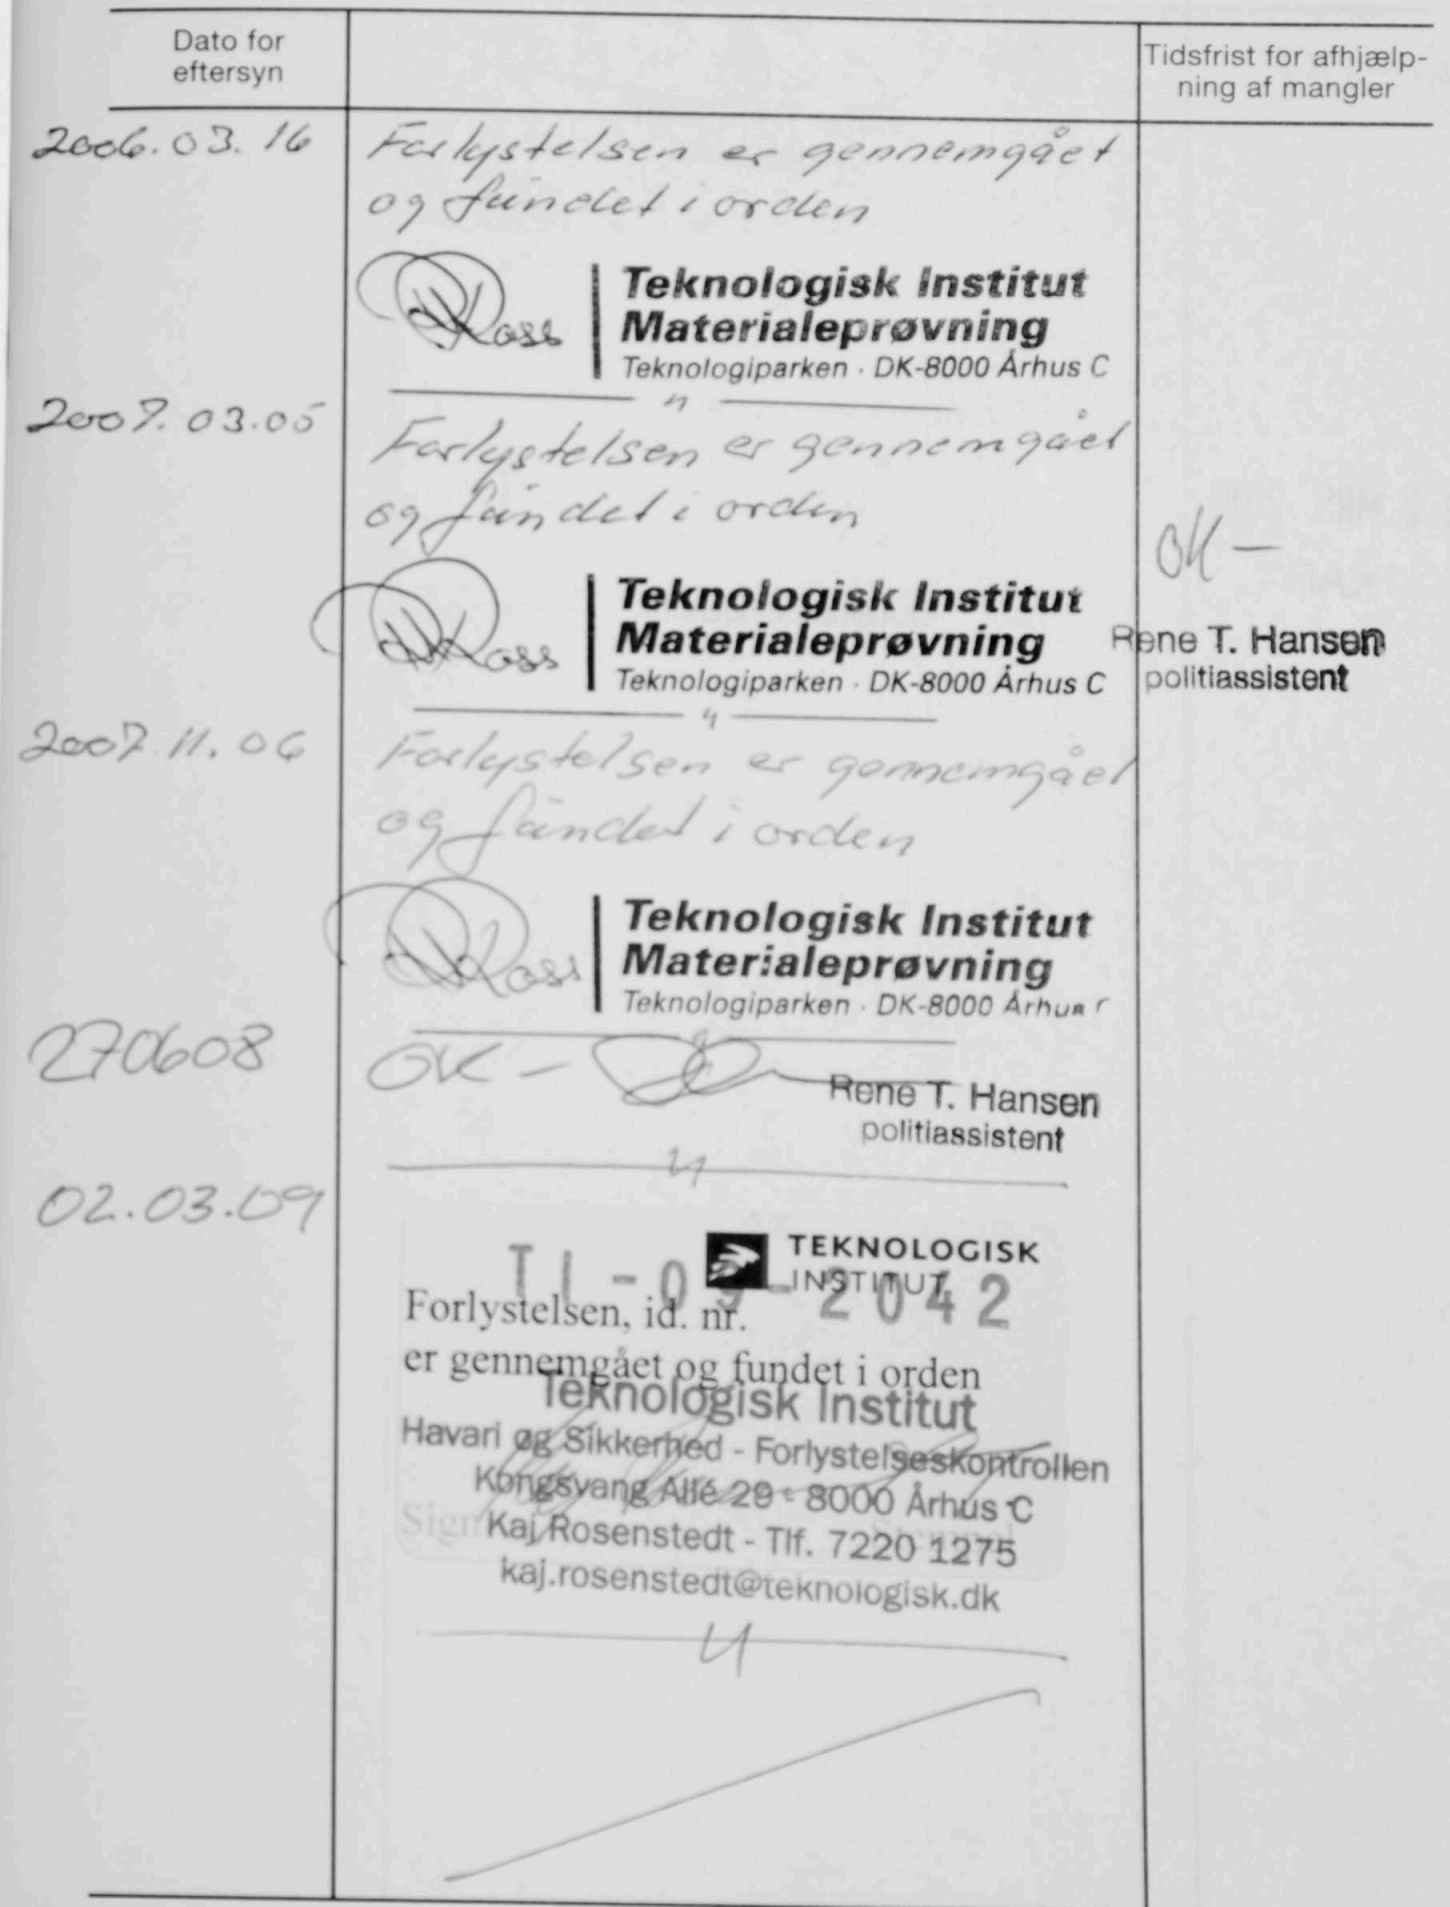 Dato for
eftersyn
Tidsfrist for afhjælp-
ning af mangler
2006.03.16
Forlystelsen er gennemgået
og fundet i orden
Teknologisk Institut
Materialeprøvning
Teknologiparken · DK-8000 Århus C
2007.03.05
Forlystelsen er gennemgået
og fundet i orden
OK —
Teknologisk Institut
Materialeprøvning
Teknologiparken · DK-8000 Århus C
Rene T. Hansen
politiassistent
2007.11.06
Forlystelsen er gennemgået
og fundet i orden
Teknologisk Institut
Materialeprøvning
Teknologiparken · DK-8000 Århus
270608
OK —
Rene T. Hansen
politiassistent
02.03.09
TEKNOLOGISK
INSTITUT
TI-09-2042
Forlystelsen, id. nr.
er gennemgået og fundet i orden
Teknologisk Institut
Havari og Sikkerhed - Forlystelseskontrollen
Kongsvang Allé 29 - 8000 Århus C
Kaj Rosenstedt - Tlf. 7220 1275
kaj.rosenstedt@teknologisk.dk